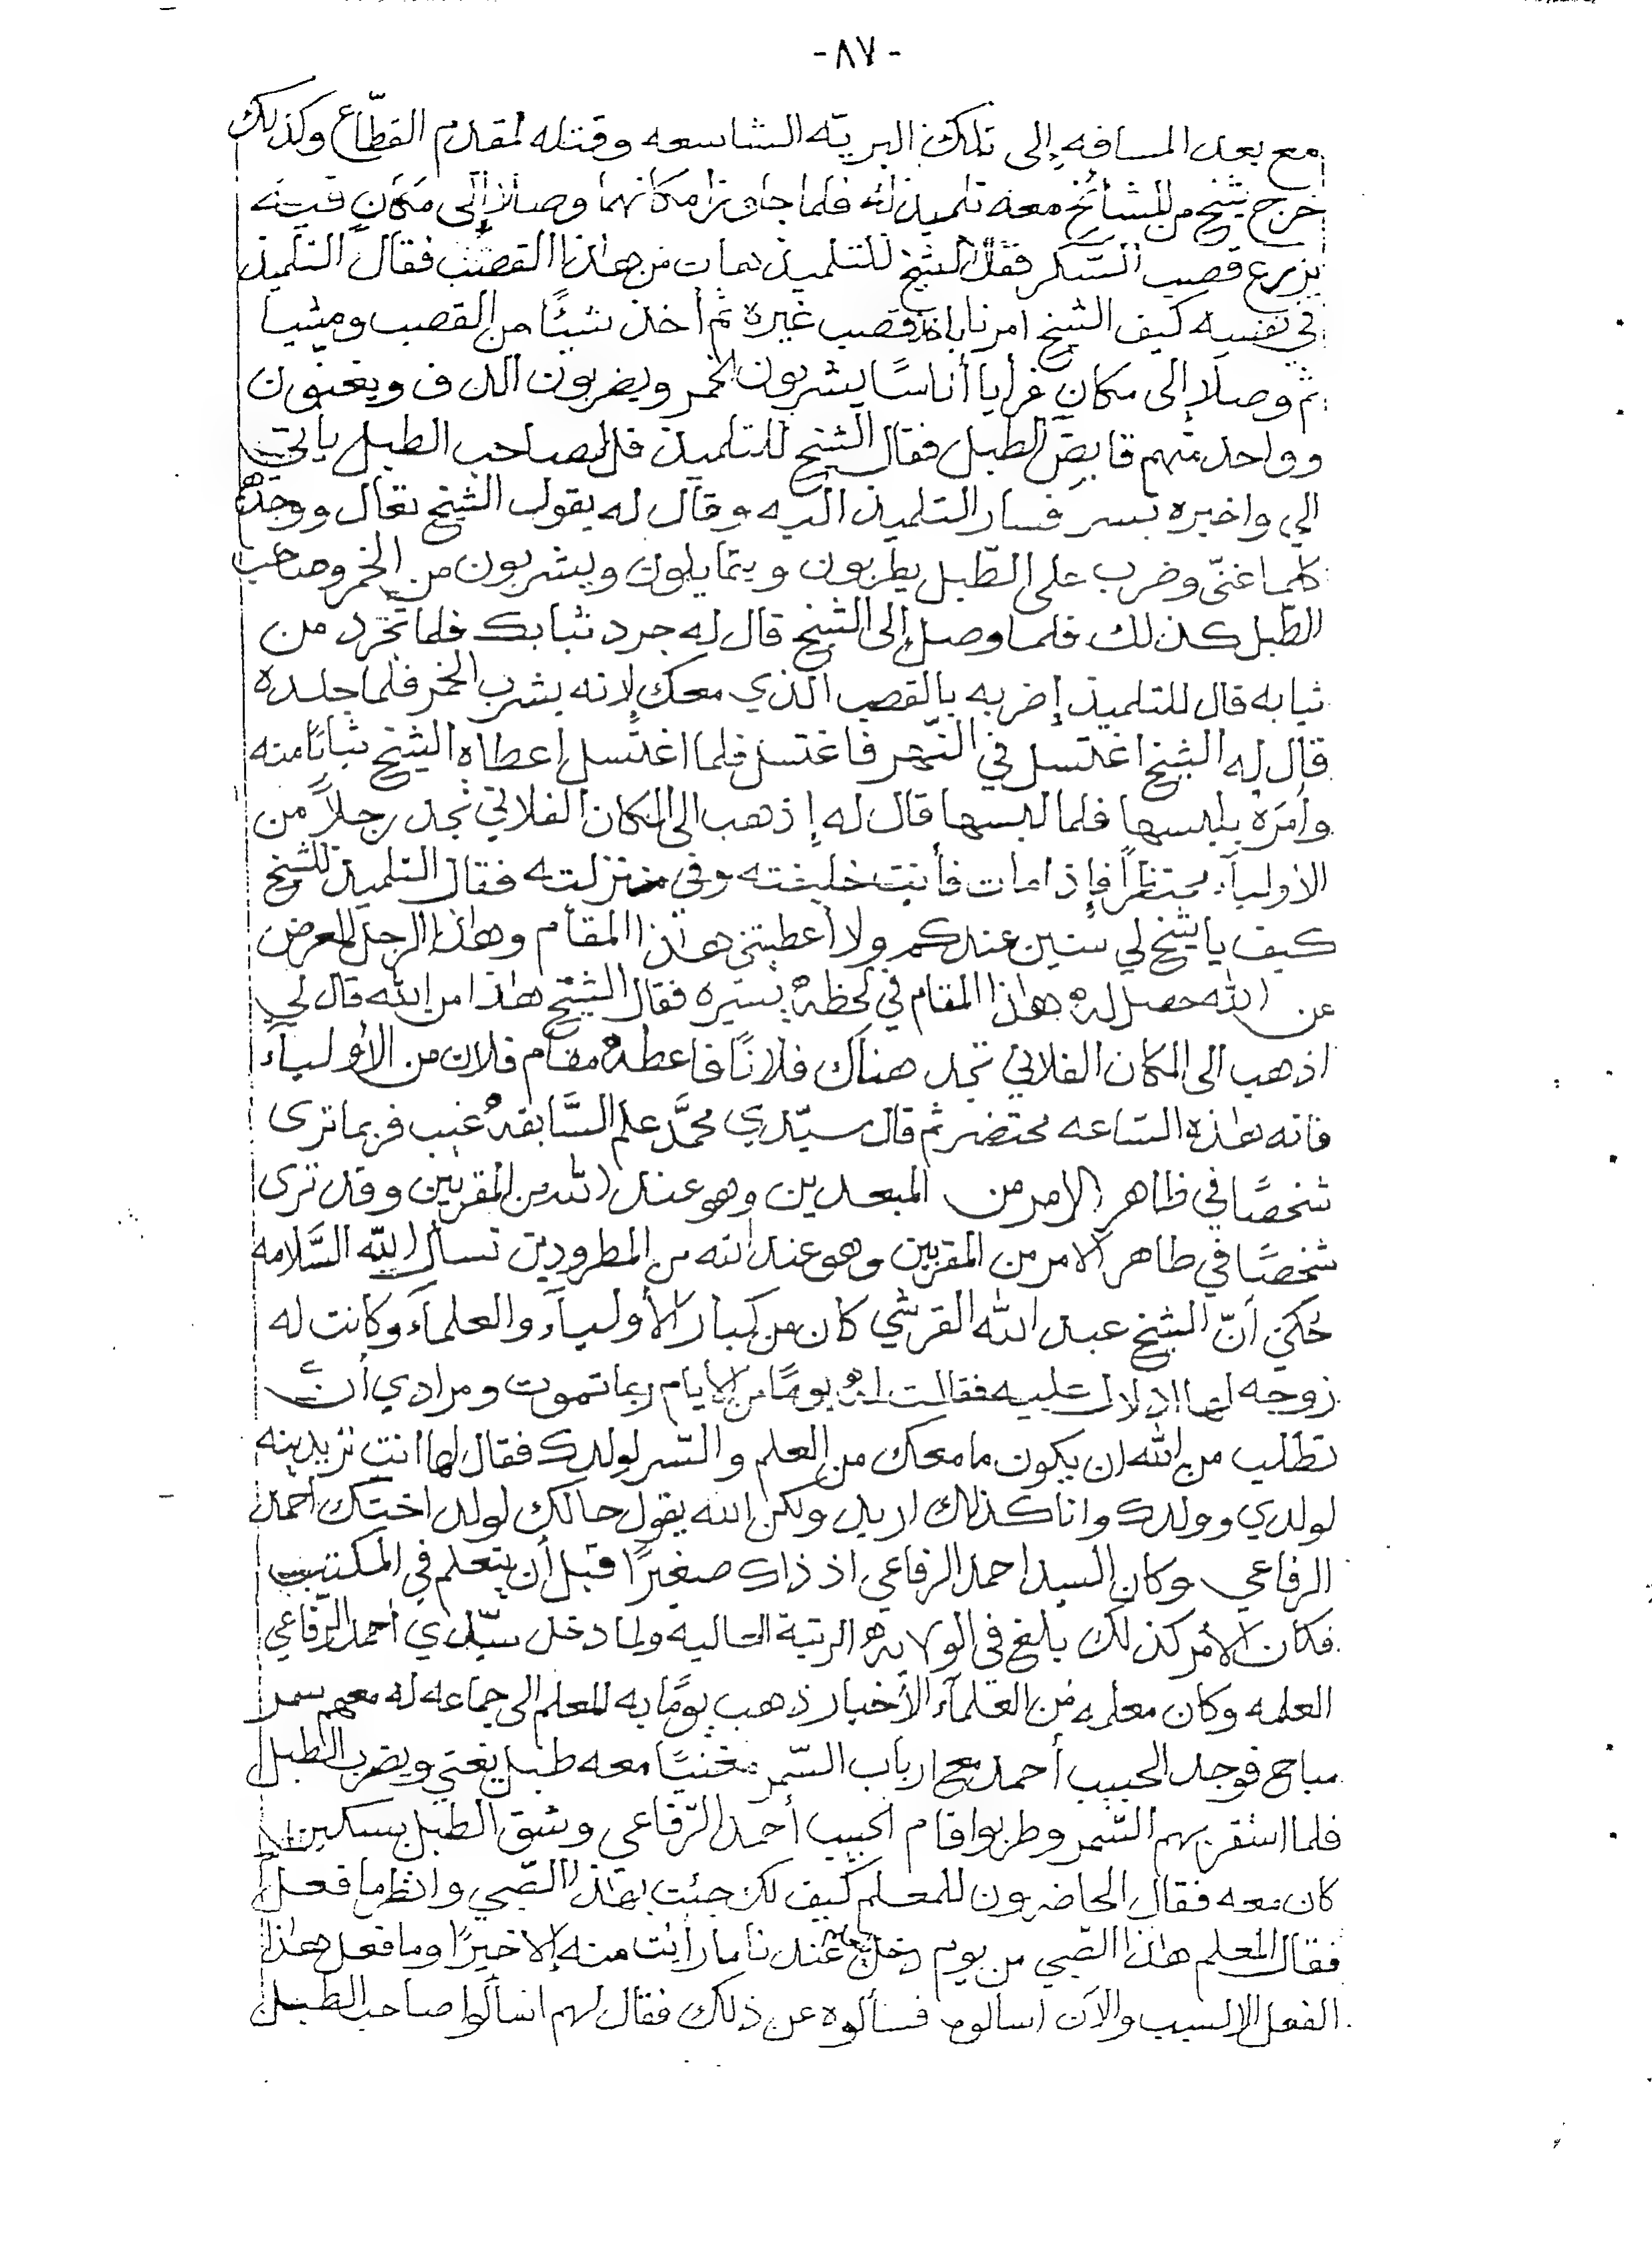 -٨٧-
مع بعد المسافه إلى تلك البريّه الشاسعه وقتله لمقدم القطّاع وكذلك
خرج شيخ من المشائخ معه تلميذ له فلما جاوزا مكانهما وصلا إلى مكان فيه
يزرع قصب السّكر فقال الشيخ للتلميذ هات من هٰذا القصب فقال التلميذ
في نفسه كيف الشيخ امرنا باخذ قصب غيره ثم أخذ شيئًا من القصب ومشيا
ثم وصلا إلى مكان فرأيا أناسًا يشربون الخمر ويضربون الدف ويغنّون
وواحد منهم قابض الطبل فقال الشيخ للتلميذ قل لصاحب الطبل يأتي
إلي واخبره بسر فسار التلميذ اليه وقال له يقول الشيخ تعال ووجدهم
كلما غنّى وضرب على الطّبل يطربون ويتمايلون ويشربون من الخمر وصاحب
الطّبل كذلك فلما وصل إلى الشيخ قال له جرد ثيابك فلما تجرد من
ثيابه قال للتلميذ إضربه بالقصب الذي معك لانه يشرب الخمر فلما جلده
قال له الشيخ اغتسل في النّهر فاغتسل فلما اغتسل أعطاه الشيخ ثيابًا منه
وأمره بلبسها فلما لبسها قال له إذهب الى المكان الفلاني تجد رجلاً من
الاولياء محتضراً فإذا مات فأنت خليفته وفي منزلته فقال التلميذ للشيخ
كيف يا شيخ لي سنين عندكم ولا أعطيتني هٰذا المقام وهٰذا الرجل المعرض
عن الله حصل له هٰذا المقام في لحظة يسيره فقال الشيخ هٰذا من الله قال لي
اذهب الى المكان الفلاني تجد هناك فلانًا فاعطه مقام فلان من الأولياء
فانه هٰذه السّاعه محتضر ثم قال سيّدي محمّد علم السّابقة غيب فربما ترى
شخصًا في ظاهر الامر من المبعدين وهو عند الله من المقربين وقد ترى
شخصًا في ظاهر الامر من المقربين وهو عند الله من المطرودين نسأل الله السّلامه
حُكي أنّ الشيخ عبد الله القرشي كان من كبار الأولياء والعلماء وكانت له
زوجه لها ادلال عليه فقالت له يومًا من الأيام ربما تموت ومرادي أن
تطلب من الله ان يكون ما معك من العلم والسّر لولدك فقال لها انت تريدينه
لولدي وولدك وانا كذلك اريد ولكن الله يقول حالك لولد اختك أحمد
الرفاعي وكان السيد احمد الرفاعي اذ ذاك صغيرًا قبل أن يتعلم في المكتب
فكان الأمر كذلك بلغ في الولاية الرتبة العاليه ولما دخل سيّدي أحمد الرّفاعي
العلمه وكان معلمه من العلماء الأخيار ذهب يومًا به المعلم الى جماعه له معهم سمر
مباح فوجد الحبيب أحمد مع ارباب السّمر مغنيًا معه طبل يغني ويضرب الطبل
فلما استقر بهم السّمر وطربوا قام الحبيب أحمد الرّفاعي وشق الطبل بسكين
كان معه فقال الحاضرون للمعلم كيف لك جئت بهٰذا الصّبي وانظر ما فعل
فقال المعلم هٰذا الصّبي من يوم دخل عندنا ما رأيت منه إلا خيرًا وما فعل هٰذا
الفعل الا لسبب والآن اسألوه فسألوه عن ذلك فقال لهم اسألوا صاحب الطبل